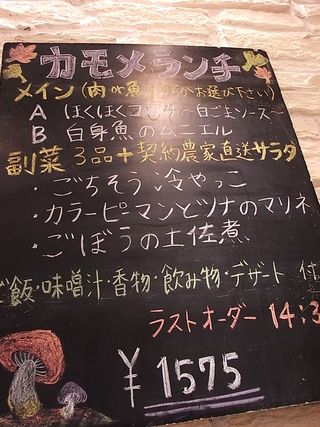 カモメランチ
メイン(肉or魚 どちらかお選び下さい)
A ほくほくコロッケ〜白ごまソース〜
B 白身魚のムニエル
副菜3品+契約農家直送サラダ
・ごちそう冷やっこ
・カラーピーマンとツナのマリネ
・ごぼうの土佐煮
ご飯・味噌汁・香物・飲み物・デザート 付
ラストオーダー 14:3
¥1575